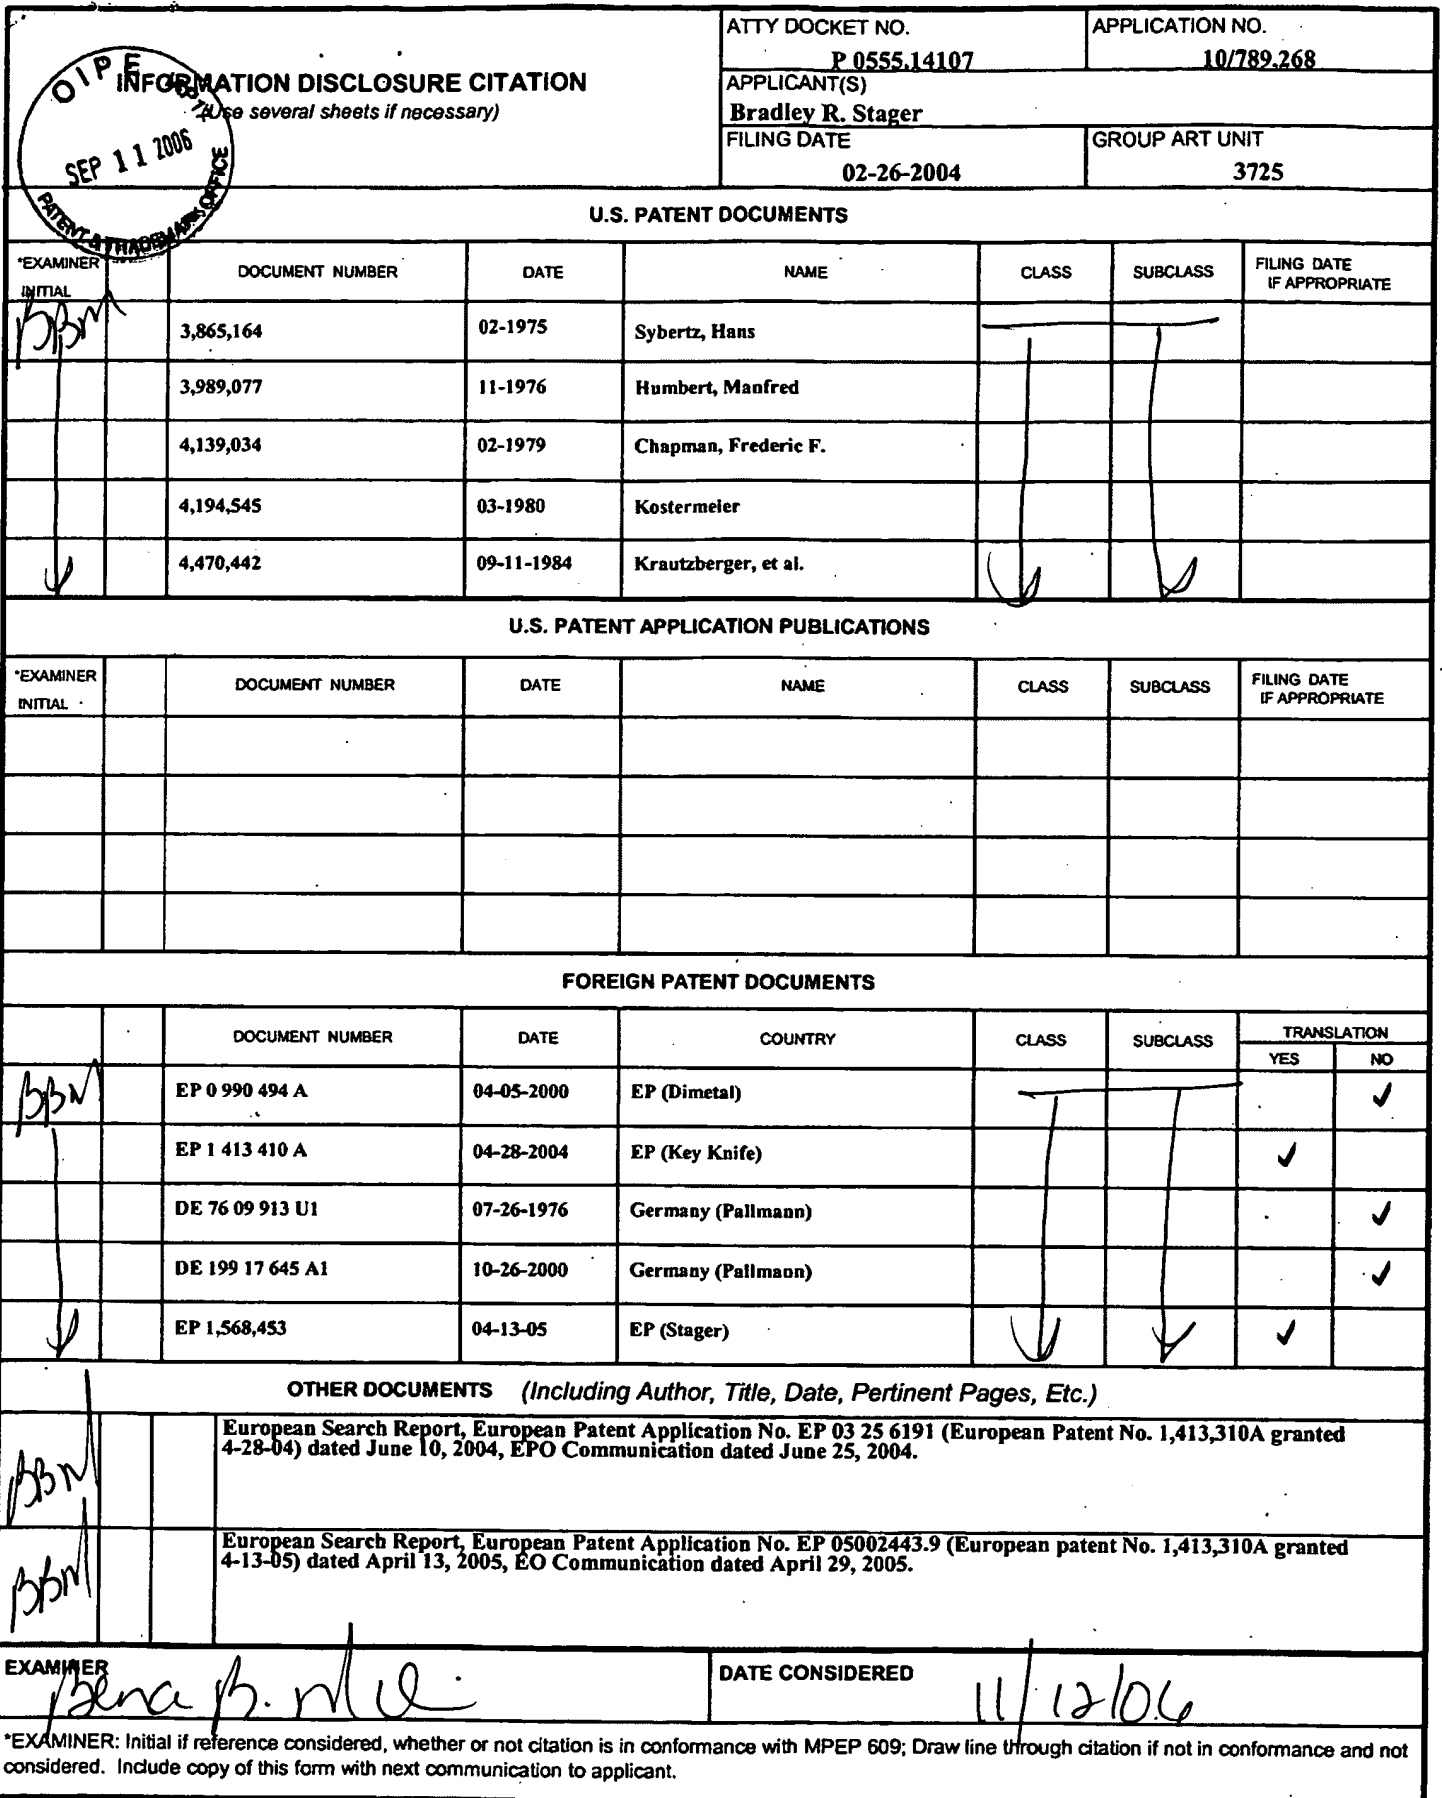 ATTY DOCKET NO.
P 0555.14107
APPLICATION NO.
10/789,268
INFORMATION DISCLOSURE CITATION
(Use several sheets if necessary)
OIPE
SEP 11 2006
PATENT & TRADEMARK OFFICE
APPLICANT(S)
Bradley R. Stager
FILING DATE
02-26-2004
GROUP ART UNIT
3725
U.S. PATENT DOCUMENTS
*EXAMINER INITIAL DOCUMENT NUMBER DATE NAME CLASS SUBCLASS FILING DATE IF APPROPRIATE
BBM 3,865,164 02-1975 Sybertz, Hans
3,989,077 11-1976 Humbert, Manfred
4,139,034 02-1979 Chapman, Frederic F.
4,194,545 03-1980 Kostermeier
4,470,442 09-11-1984 Krautzberger, et al.
U.S. PATENT APPLICATION PUBLICATIONS
*EXAMINER INITIAL DOCUMENT NUMBER DATE NAME CLASS SUBCLASS FILING DATE IF APPROPRIATE
FOREIGN PATENT DOCUMENTS
DOCUMENT NUMBER DATE COUNTRY CLASS SUBCLASS TRANSLATION
YES NO
BBM EP 0 990 494 A 04-05-2000 EP (Dimetal) ✓
EP 1 413 410 A 04-28-2004 EP (Key Knife) ✓
DE 76 09 913 U1 07-26-1976 Germany (Pallmann) ✓
DE 199 17 645 A1 10-26-2000 Germany (Pallmann) ✓
EP 1,568,453 04-13-05 EP (Stager) ✓
OTHER DOCUMENTS (Including Author, Title, Date, Pertinent Pages, Etc.)
BBM European Search Report, European Patent Application No. EP 03 25 6191 (European Patent No. 1,413,310A granted
4-28-04) dated June 10, 2004, EPO Communication dated June 25, 2004.
BBM European Search Report, European Patent Application No. EP 05002443.9 (European patent No. 1,413,310A granted
4-13-05) dated April 13, 2005, EO Communication dated April 29, 2005.
EXAMINER
DATE CONSIDERED
11/12/06
*EXAMINER: Initial if reference considered, whether or not citation is in conformance with MPEP 609; Draw line through citation if not in conformance and not
considered. Include copy of this form with next communication to applicant.